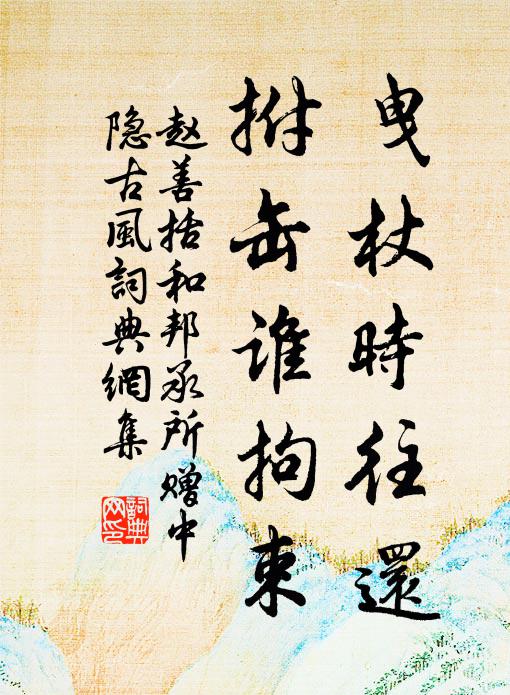 曳杖時往還
拊缶谁拘束
赵善括和邦承所赠中
隐古風詞典網集
詞典网印